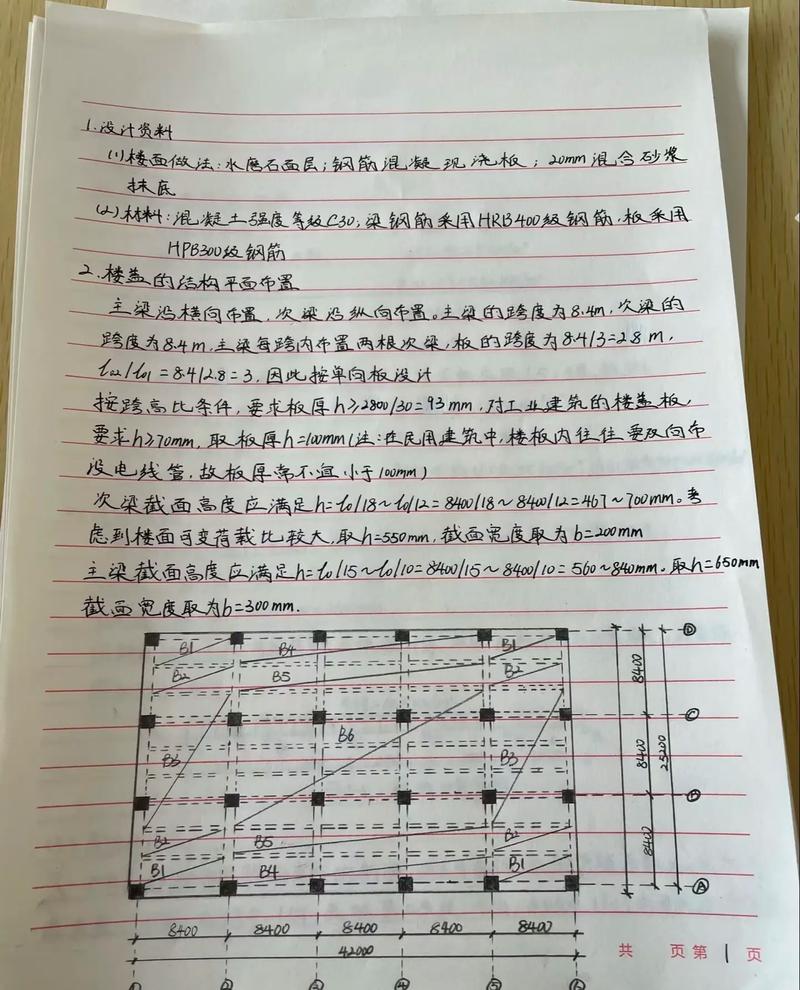 1.设计资料
(1)楼面做法:水磨石面层;钢筋混凝现浇板;20mm混合砂浆
抹底
(2)材料:混凝土强度等级C30;梁钢筋采用HRB400级钢筋,板采用
HPB300级钢筋
2.楼盖的结构平面布置
主梁沿横向布置,次梁沿纵向布置。主梁的跨度为8.4m,次梁的
跨度为8.4m,主梁每跨内布置两根次梁,板的跨度为8.4/3=2.8m,
l02/l01=8.4/2.8=3,因此按单向板设计
按跨高比条件,要求板厚h≥2800/30=93mm,对工业建筑的楼盖板,
要求h≥70mm,取板厚h=100mm(注:在民用建筑中,楼板内往往要双向布
设电线管,故板厚常不宜小于100mm)
次梁截面高度应满足h=l0/18~l0/12=8400/18~8400/12=467~700mm。考
虑到楼面可变荷载比较大,取h=550mm,截面宽度取为b=200mm
主梁截面高度应满足h=l0/15~l0/10=8400/15~8400/10=560~840mm。取h=650mm
截面宽度取为b=300mm.
B1 B4 B1 D
B2 B5 B2 8400
C
B6
B3 B3 8400 25200
B2 B5 B2 8400
B1 B4 B1
A
8400 8400 8400 8400 8400
42000
共 页第 1 页